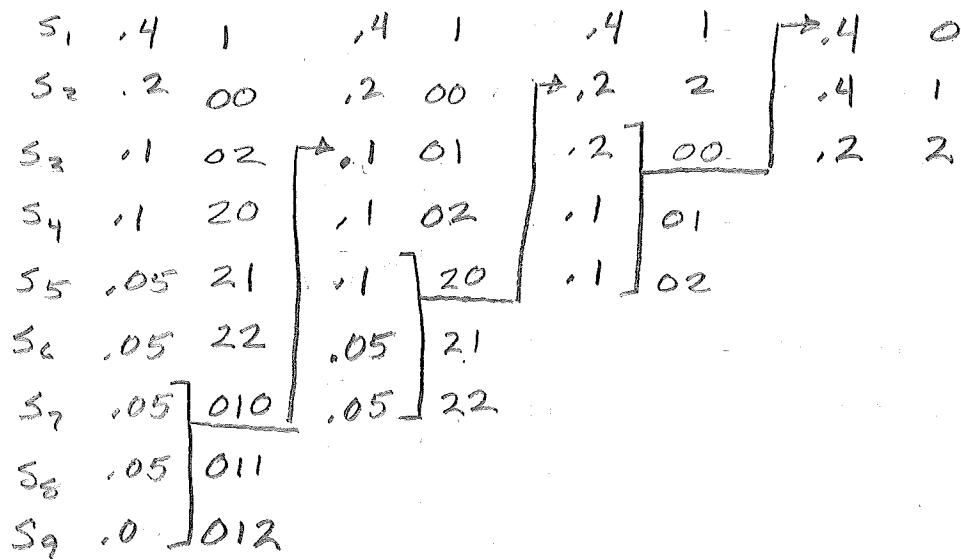 S1 .4 1 .4 1 .4 1 .4 0
S2 .2 00 .2 00 .2 2 .4 1
S3 .1 02 .1 01 .2 00 .2 2
S4 .1 20 .1 02 .1 01
S5 .05 21 .1 20 .1 02
S6 .05 22 .05 21
S7 .05 010 .05 22
S8 .05 011
S9 .0 012